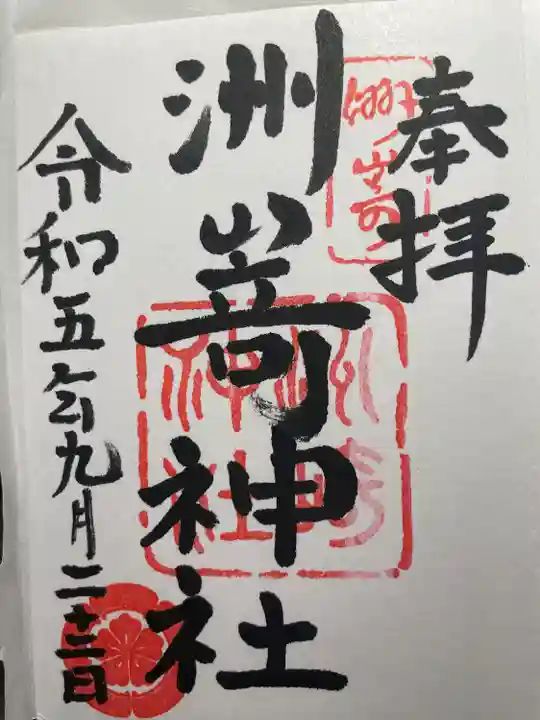 奉拝
洲嵜
洲嵜神社
洲嵜神社
令和五年九月二十二日